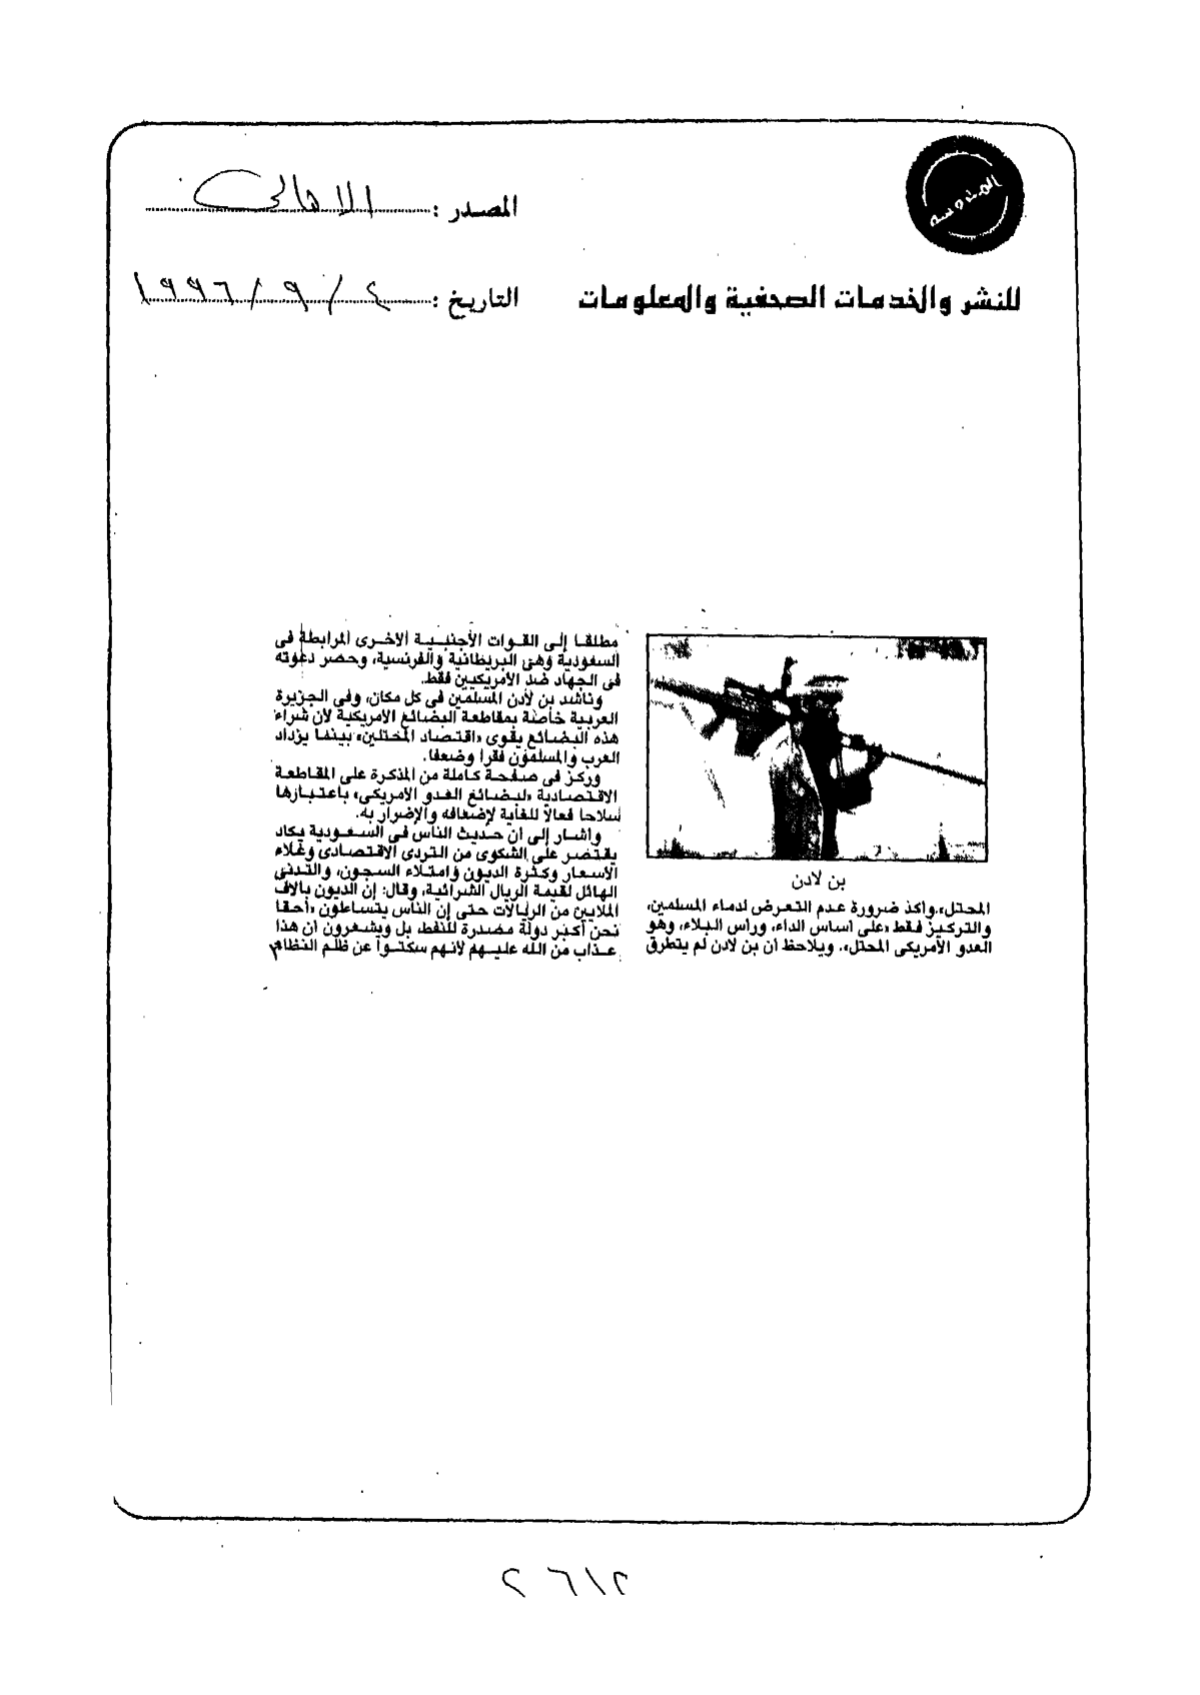 المدوسة
المصدر : الاهالى
للنشر والخدمات الصحفية والمعلومات
التاريخ : ٤ / ٩ / ١٩٩٦
بن لادن
المحتل».واكد ضرورة عدم التعرض لدماء المسلمين،
والتركيز فقط «على أساس الداء، ورأس البلاء، وهو
العدو الأمريكى المحتل». ويلاحظ ان بن لادن لم يتطرق
مطلقا إلى القوات الأجنبية الاخرى المرابطة فى
السعودية وهى البريطانية والفرنسية، وحصر دعوته
فى الجهاد ضد الأمريكيين فقط.
وناشد بن لادن المسلمين فى كل مكان، وفى الجزيرة
العربية خاصة بمقاطعة البضائع الامريكية لأن شراء
هذه البضائع يقوى «اقتصاد المحتلين» بينما يزداد
العرب والمسلمون فقرا وضعفا.
وركز فى صفحة كاملة من المذكرة على المقاطعة
الاقتصادية «لبضائع العدو الامريكى» باعتبارها
سلاحا فعالا للغاية لإضعافه والإضرار به.
واشار إلى ان حديث الناس فى السعودية يكاد
يقتصر على الشكوى من التردى الاقتصادى وغلاء
الاسعار وكثرة الديون وامتلاء السجون، والتدنى
الهائل لقيمة الريال الشرائية، وقال: إن الديون بالاف
الملايين من الريالات حتى إن الناس يتساءلون «أحقا
نحن أكبر دولة مصدرة للنفط، بل ويشعرون ان هذا
عذاب من الله عليهم لأنهم سكتوا عن ظلم النظام